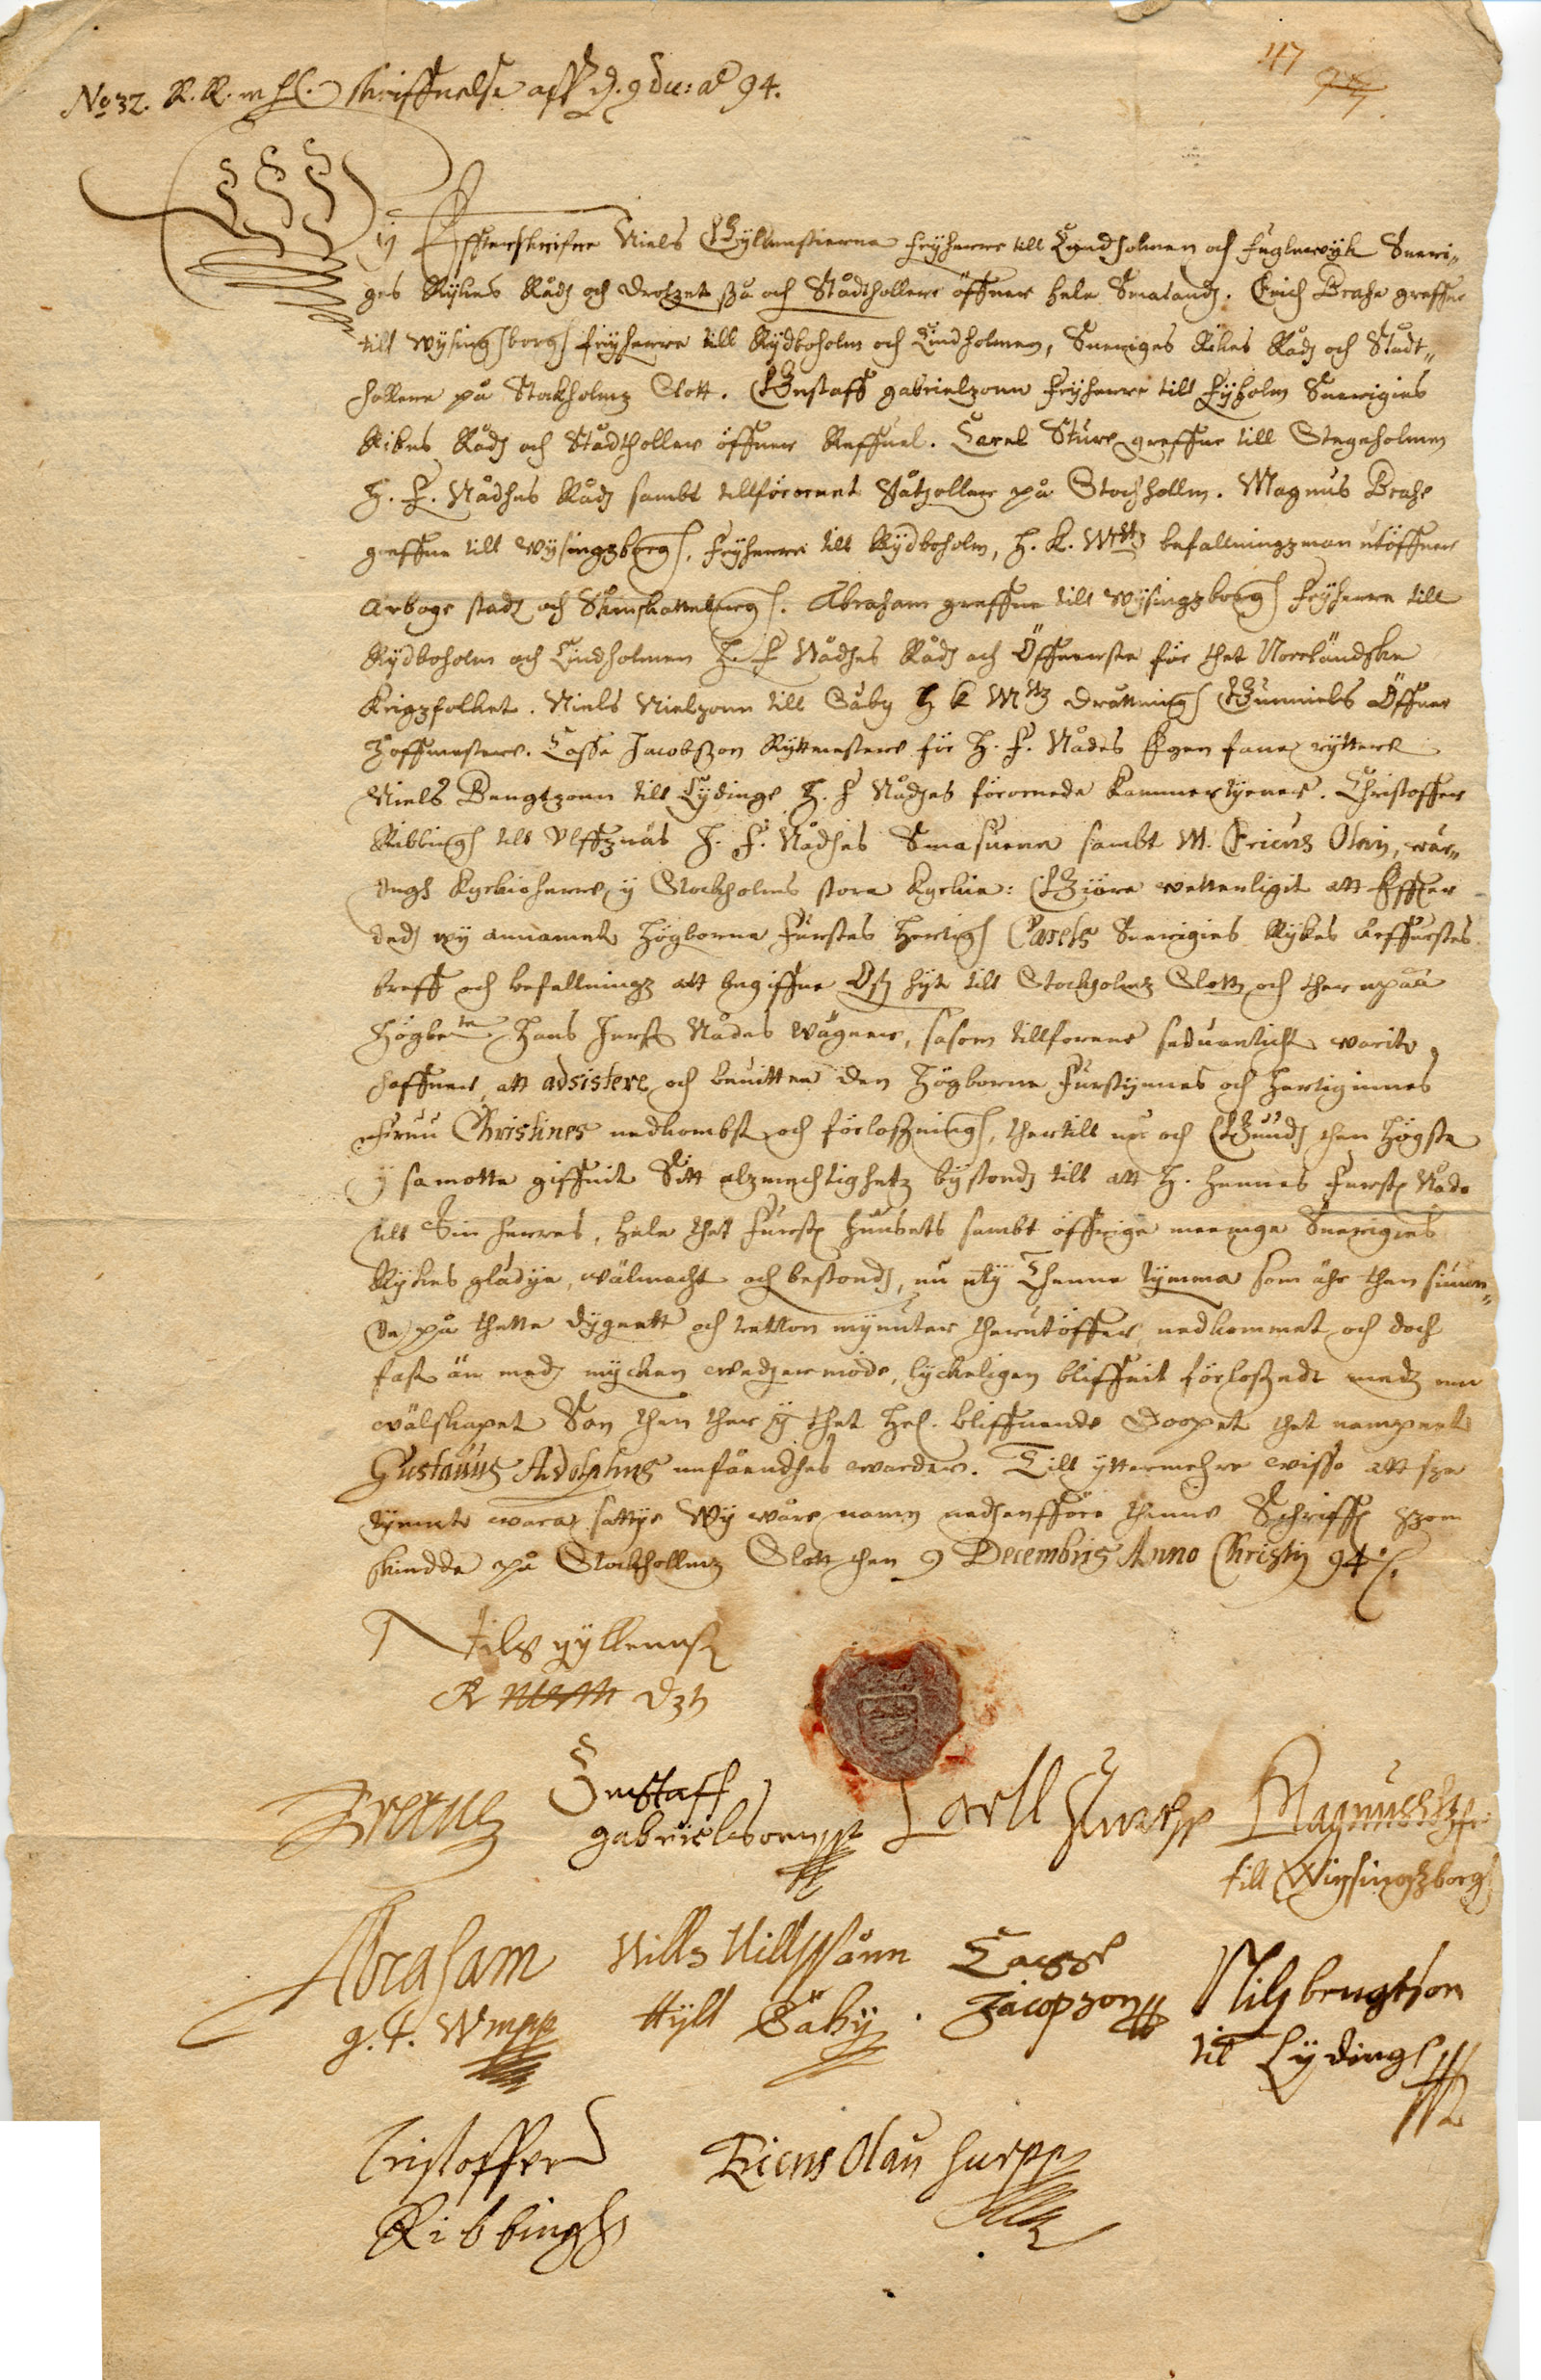 No 32. R. R. m fl. skriffuelse aff d. 9 dec: a° 94.
117
Wij Effterskrifne Niels Gyllenstierna fryherre till Lundholmen och fuglewyk Sueri„
ges Rykes Rådh och Drotzet så och Ståthollere öffuer hele Smalandh. Erich Brahe greffue
till wysingzborgh fryherre till Rydboholm och Lindholmen, Sueriges Rikes Rådh och Stadt„
hollere på Stockholmz Slott. Gustaff gabrielzonn fryherre till Hyholm Suerigies
Rikes Rådh och Stådthollere öffuer Reffuel. Carel Sture greffue till Stegeholmen
H. F. Nådhes Rådh sambt tillförornet Ståtholler på Stochollm. Magnus Brahe
greffue till wysingzborgh, fryherre till Rydboholm, H. K. Mttz befallningzman utöffuer
Arboge stadt och . Abraham greffue till wysingzborgh fryherre till
Rydboholm och Lindholmen H. F. Nådhes Rådh och Öffuerste för thet Norrländske
Krigzfolket. Niels Nielzonn till Säby H K Mttz Drottningh Gunniels Öffuer
Hoffmestere. Lasse Jacobsson Ryttmestere för H. F. Nådes Egen fane ryttere
Niels Bengtzonn till Lydinge H. F Nådhes förornede Kammertyenere. Christoffer
Ribbingh till Ulffznäs H. F. Nådhes Smasuene sambt M. Ericus Olai, wär„
dugh Kyrkioherre ij Stockholms store Kyrkie: Giöre wetterligit att Effter
dedh wy annamet Högborne Furstes Hertigh Carels Suerigies Rykes Arffurstes
breff och befallningz att begiffue Oss hyt till Stockholmz Slott och ther upåå
Högbete Hans Furst Nådes wägner, såsom tillforene seduanlicht warit
haffuer, att adsistere och beuittne den Högborne Furstinnes och Hertiginnes
Fruu Christines nedkombst och förlossningh, thertill nu och Gudh then Högste
ij samotte giffuit Sitt alzmechtighetz bystondh till att H. Hennes Furst Nåde
till Sin herres, hele thet Furst huusets sambt öffrige meenige Suerigies
Rykes glädije, wälmacht och bestondh, nu utij Thenne tymma som ähr then siuun„
de på thette dygnett och tretton mijnuter therutöffuer nedkommet och doch
fast än medh mycken wedhermöde, lyckeligen bliffuit förlossedt medh en
wälskapet Son then ther ij thet Hel. bliffuende Doopet thet nampnet
Gustauus Adolphus unfåendhes warder. Till yttermehre wisso att så
tijmmet ware, sättije Wij wåre namn nedhenföre thenne Schrifft som
skiedde på Stockhollmz Slott then 9 Decembris Anno Christij 94.
Nils gyllenst
R Dzt
Gustaff
gabrielsonn
Carll Sture
Magnus
till Wijsingzborgh
Abraham
g. t. W
Nills Nillssånn
ttyll Säby .
Lasse
Jacopzon
Nils bengtson
til Lydingh
Cristoffer
Ribbingh
Ericus Olaii